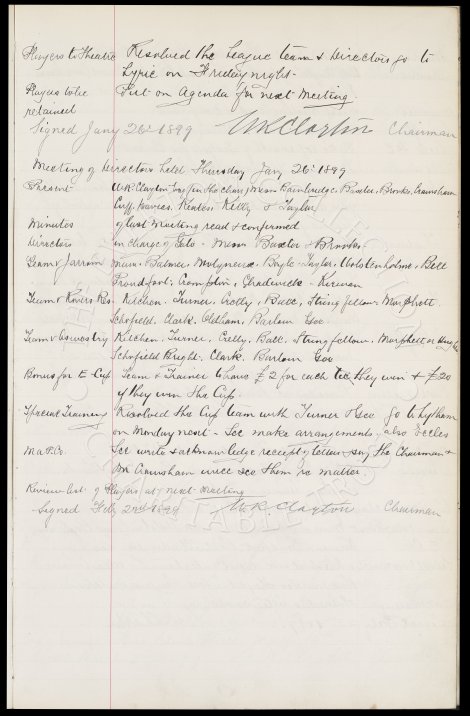 Players to Theatre Resolved the League team & Directors go to
Lyric on Friday night.
Players to be Put on Agenda for next Meeting
retained
Signed Jany 26th 1899 WR Clayton Chairman
Meeting of Directors held Thursday Jany 26th 1899
Present WR Clayton Esq (in the chair) Messrs Bainbridge, Baxter, Brooks, Crawshaw
Cuff, Davies, Kelly & Taylor
Minutes of last Meeting read & confirmed
Directors in charge of Gate - Messrs Baxter & Brooks
Team v Jarrow Muir. Balmer. Molyneux. Boyle. Taylor. Wolstenholme. Bell
Proudfoot. Crompton. Chadwick. Kirwan
Team v Rovers Res. Kitchen. Turner. Crelly. Ball. Stringfellow.
Schofield. Clark. Oldham. Barlow. Gee
Team v Oswestry Kitchen. Turner. Crelly. Ball. Stringfellow. or
Schofield Bright. Clark. Barlow Gee
Bonus for E. Cup Team & Trainer to have £2 for each tie they win & £20
if they win the Cup.
Special Training Resolved the Cup team with Turner & Gee go to Lytham
on Monday next - Sec make arrangements, also Eccles
Sec write & acknowledge receipt of letter & say the Chairman &
Mr Crawshaw will see them re matter.
Review list of Players at next meeting
Signed Feby 2nd 1899 WR Clayton Chairman